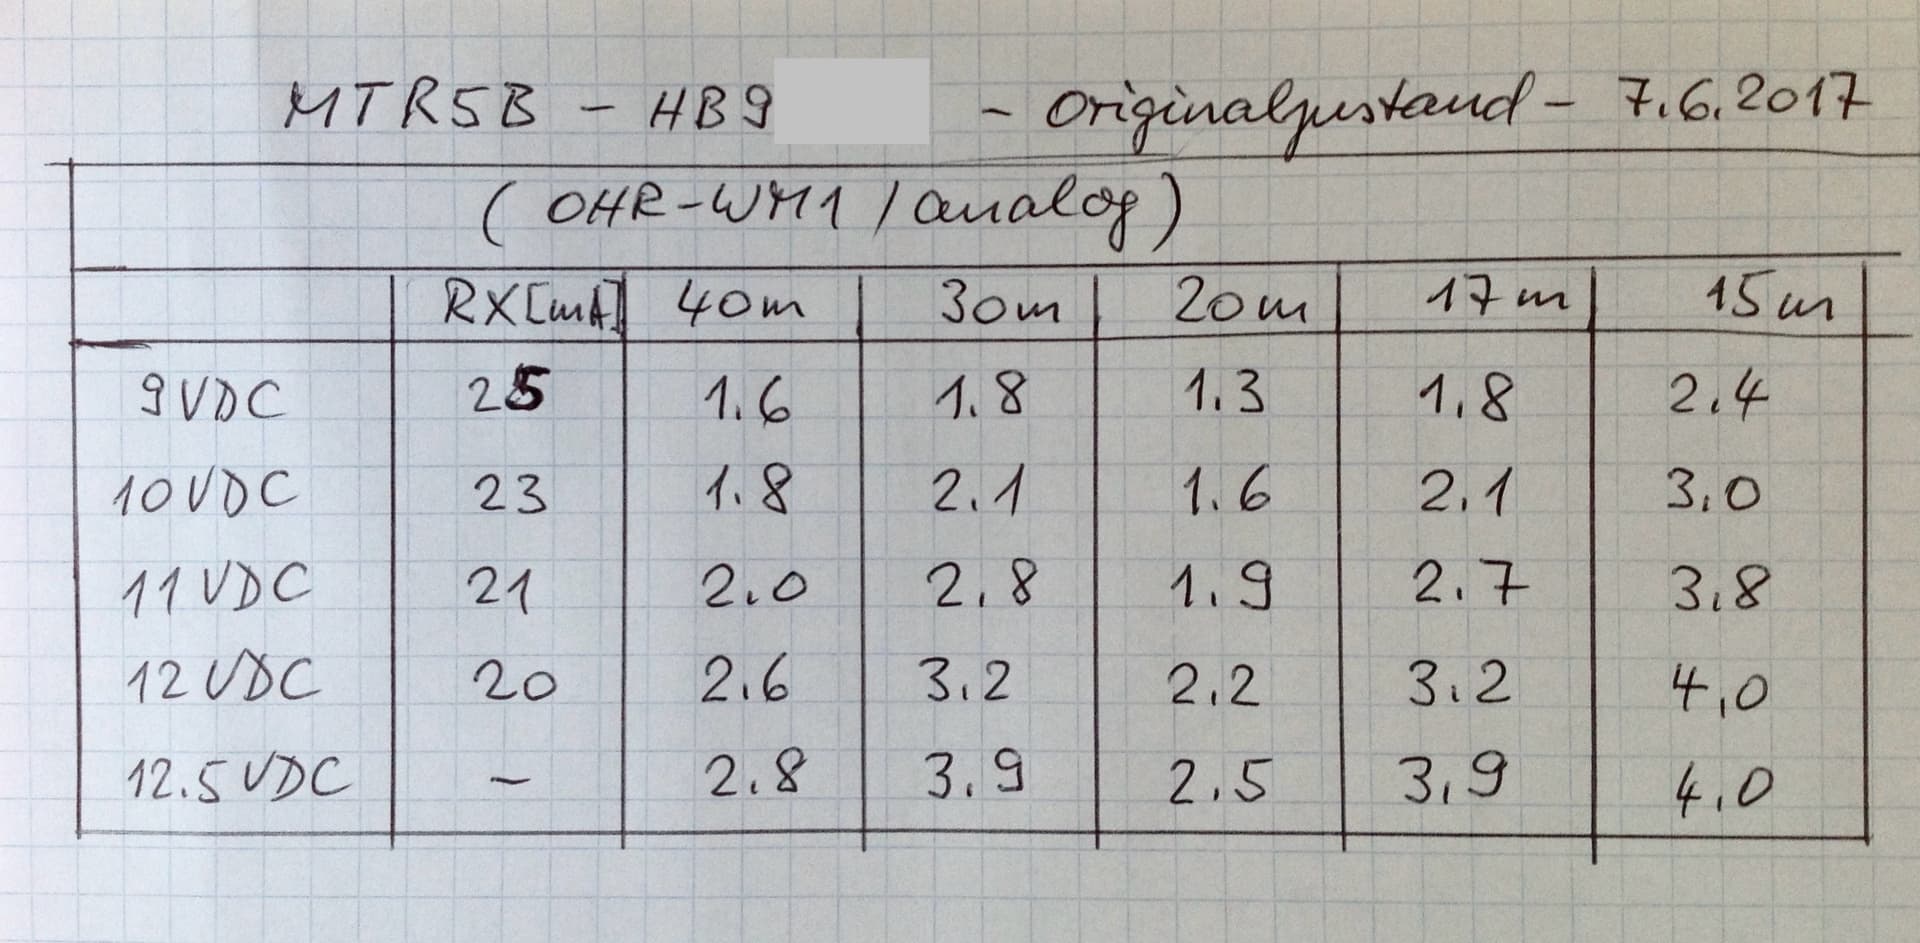 MTR5B - HB9 - Originalzustand - 7.6.2017
(OHR-WM1 / analog)
RX[mA] 40m 30m 20m 17m 15m
9VDC 25 1.6 1.8 1.3 1.8 2.4
10VDC 23 1.8 2.1 1.6 2.1 3.0
11VDC 21 2.0 2.8 1.9 2.7 3.8
12VDC 20 2.6 3.2 2.2 3.2 4.0
12.5VDC - 2.8 3.9 2.5 3.9 4.0